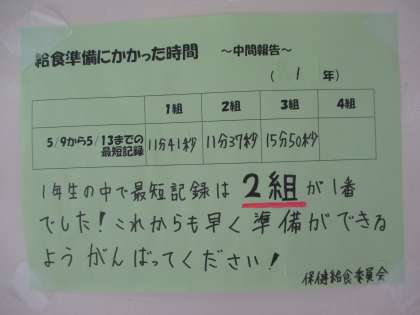 給食準備にかかった時間 ～中間報告～
( 1 年)
1組 2組 3組 4組
5/9から5/13までの最短記録 11分41秒 11分37秒 15分50秒
1年生の中で最短記録は 2組 が1番
でした！これからも早く準備ができる
ようがんばってください！
保健給食委員会